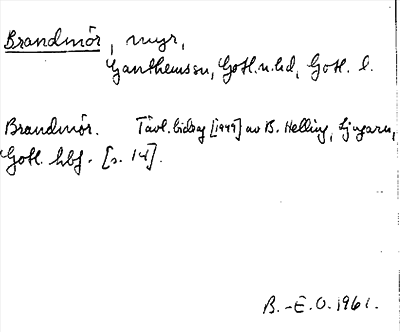 Brandmör, myr,
Ganthemssn, Gotl. n. hd, Gotl. l.
Brandmör. Tävl. bidrag [1949] av B. Helling, Ljugarn,
Gotl. hbf. [s. 14].
B.-E.O. 1961.